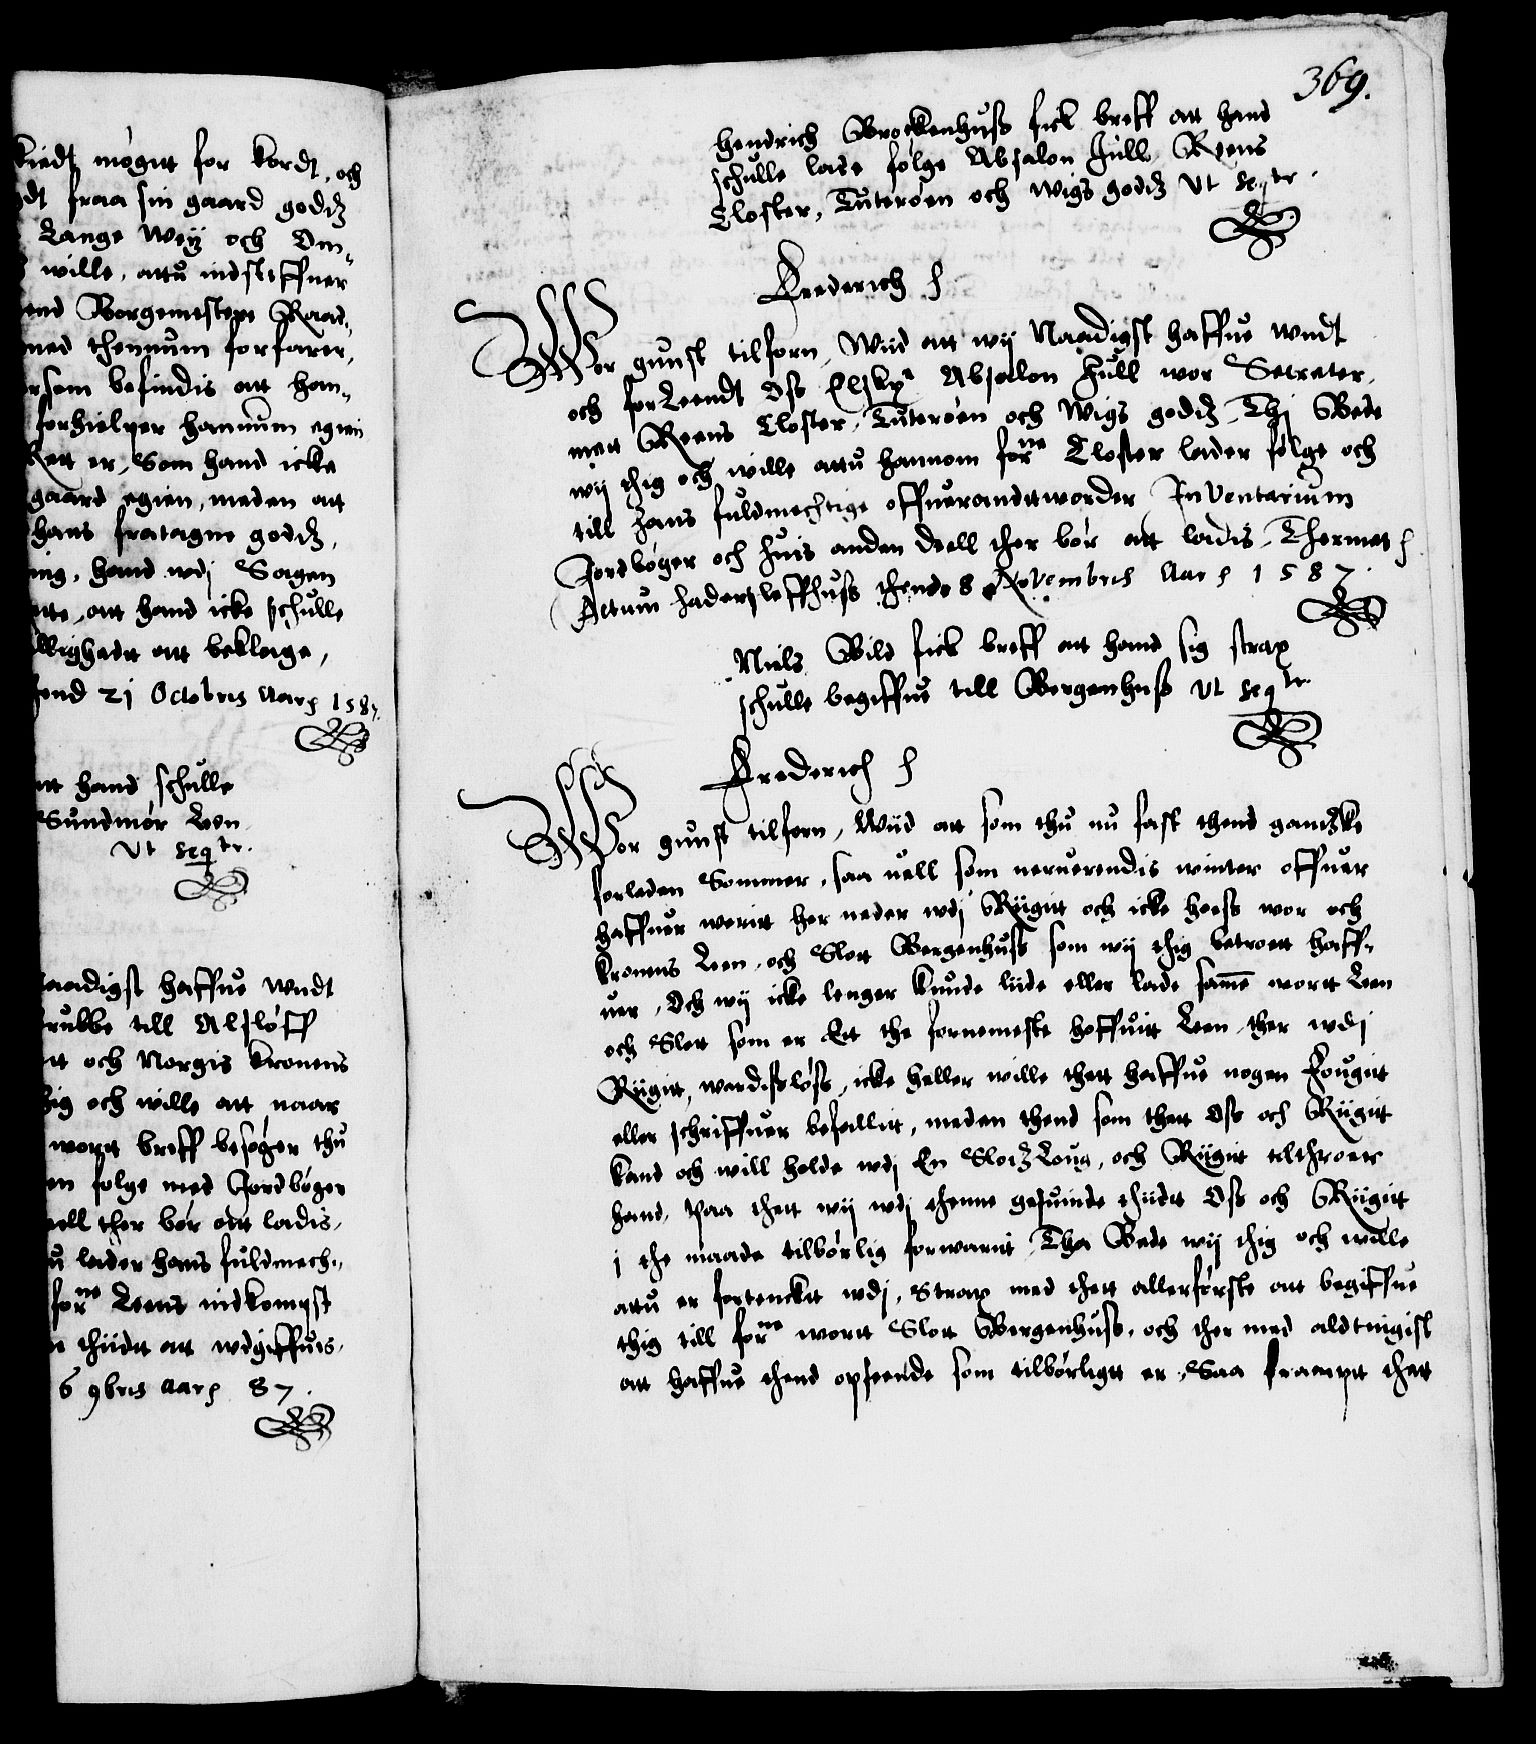 kiedt møgitt for kordt, och
dt fraa sin gaard godtz
Lange Weÿ och Om¬
wille, attu indsteffner
end Borgemestere Raad¬
med thennum forfarer,
rsom befindis att han¬
forhielper hannum egien
Rett er, Som hand icke
gaard egien, meden att
hans fratagne godtz,
ing, hand wdj Sagen
ette, att hand icke schulle
llighedt att beklage,
hend 21 Octobris Aar 1587.
att hand schulle
Sundmør Leen
Vt seqtr.
naadigst haffue wndt
rubbe till Alsløff
tt och Norgis kronens
thig och wille att naar
wortt breff besøger thu
en følge med Jordbøger
dell ther bør att ladis,
u lader hans fuldmech¬
forne Leens indkompst
n thiidt att wdgiffuis.
6 9bris Aar 87.
369.
Hendrich Brockenhuss fick breff att hand
schulle lade følge Absalon Jull, Reens
Closter, Tuterøen och Wigs godtz Vt seqtr.
Frederich
Wor gunst tilforn, Wiid att wij Naadigst haffue wndt
och forleendt Oss Elskr Absalon Jull wor Secreter,
mett Reens Closter, Tuterøen och Wigs godtz, Thj Bede
wij thig och wille attu hannom forne Closter lader følge och
till hans fuldmechtige offuerandttworder Inventarium
Jordbøger och huis anden deell ther bør att ladis, Thermet
Actum Haderssleffhuss thend 8 Novembris Aar 1587.
Niels Bild fick breff att hand sig strax
schulle begiffue till Bergenhuss Vt seqtr.
Frederich
Wor gunst tilforn, Wiid att som thu nu fast thend gandtzke
forleden Sommer, saa uell som neruerendis winter offuer
haffuer werit her neder wdj Riigitt och icke hoess wor och
kronens Leen, och Slott Bergenhuss som wij thig betroett haff¬
uer, Och wij icke lenger kunde liide eller lade samme wortt Leen
och Slott som er Ett the fornemeste hoffuit Leen ther wdj
Riigitt, wardissløss, icke heller wille thett haffue nogen Fougitt
eller schriffuer befallitt, meden thend som thett Oss och Riigitt
kand och will holde wdj En Slotz Loug, och Riigitt tilthroer
hand, Paa thett wij wdj thenne gesuinde thiidt Oss och Riigitt
i the maade tilbørlig forwarit, Tha Bede wij thig och wille
attu er fortenckt wdj, Strax med thett allerførste att begiffue
thig till forne wortt Slott Bergenhuss, och ther med aldtingist
att haffue thend opseende som tilbørligtt er, Saa frampt thett